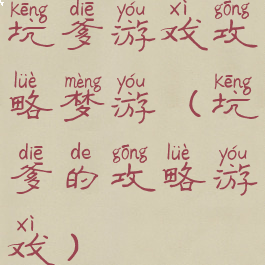 kēng diē yóu xì gōng
坑 爹 游 戏 攻
lüè mèng yóu kēng
略 梦 游 （ 坑
diē de gōng lüè yóu
爹 的 攻 略 游
xì
戏 ）